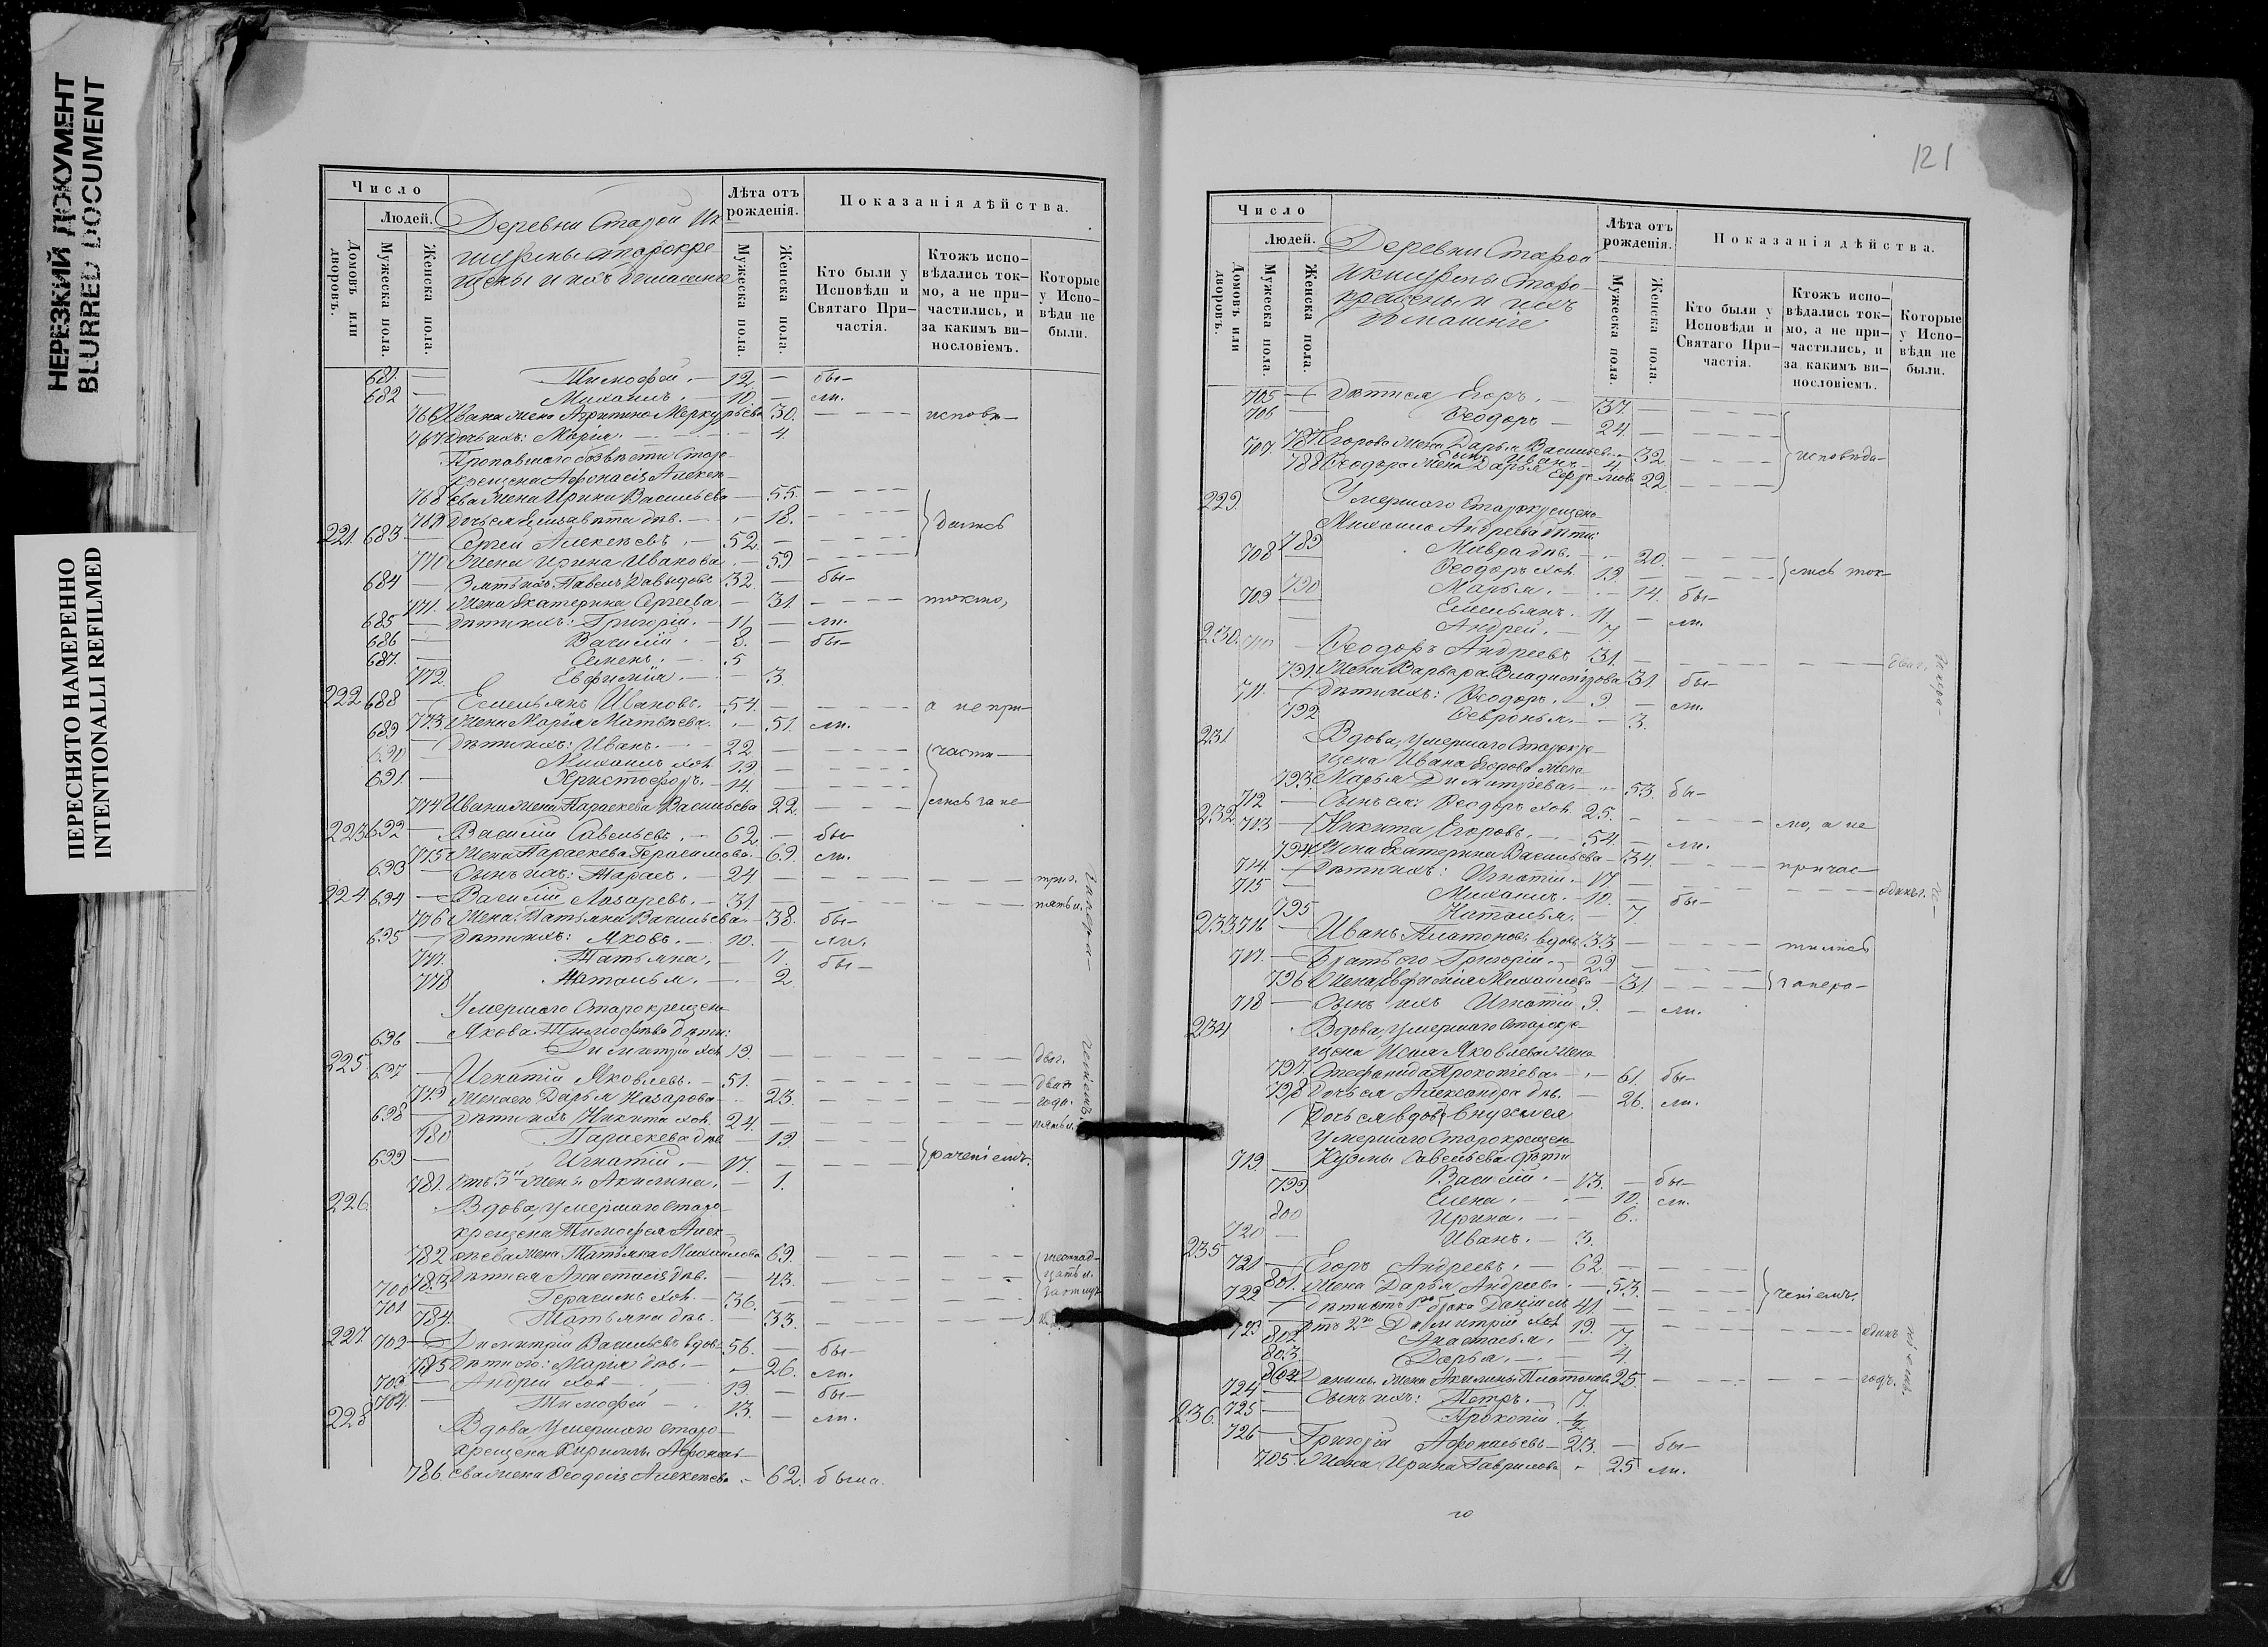 НЕРЕЗКИЙ ДОКУМЕНТ
BLURRED DOCUMENT
ПЕРЕСНЯТО НАМЕРЕННО
INTENTIONALLI REFILMED
Число
Людей.
Домовъ или дворовъ.
Мужеска пола.
Женска пола.
Деревни Старой Ик
шурмы старокре
щены и ихъ домашніе
Лѣта отъ рожденія.
Мужеска пола.
Женска пола.
Показанія дѣйства.
Кто были у Исповѣди и Святаго При-частія.
Ктожъ испо-вѣдались ток-мо, а не при-частились, и за какимъ ви-нословіемъ.
Которые у Испо-вѣди не были.
681. Тимофей. 12. бы-
682 Михаилъ. 10. ли.
766 Ивана жена Агрипина Меркурьева 30. исповѣ-
767 дочь ихъ: Марія. 4.
Пропавшаго безвѣсти Старо-
крещена Афонасія Алексѣ-
768 ева жена Ирина Васильева 55.
769 дочь ея Елизавѣта дѣв. 18. дались
221. 683 Сергѣй Алексѣевъ. 52
770 Жена Ирина Иванова 59
684 Зять ихъ Павелъ Давыдовъ 32 бы-
771. Жена Екатерина Сергѣева 31. токмо,
685 дѣти ихъ: Григорій. 11 ли.
686 Василій. 8. бы-
687. Семенъ. 5
772. Евфимія. 3.
222 688 Емельянъ Ивановъ. 54. а не при-
773. Жена Марія Матвѣева. 51. ли.
689 дѣти ихъ: Иванъ. 22 части-
690 Михаилъ хол 19
691 Христофоръ. 14.
774 Ивана жена Параскева Васильева 22. лись за не-
223 692 Василій Савельевъ. 62 бы-
775 Жена Параскева Герасимова. 69. ли.
693 Сынъ ихъ: Тарасъ. 24 три г.
224 694 Василій Лазаревъ. 31 пять л.
776 Жена: Татьяна Васильева 38. бы-
695 дѣти ихъ: Яковъ. 10. ли.
777. Татьяна. 7. бы-
778 Наталья. 2
Умершаго Старокрещена
Якова Тимофѣева дѣти:
696 Димитрій хол 19. два г.
225. 697 Игнатій Яковлевъ. 51. два
779 Жена его Дарья Назарова 23. года.
698 дѣти ихъ Никита хол. 24. пять л.
780 Параскева дѣв 19.
699 Игнатій. 17. раченіемъ.
781. отъ 3й жены Акилина. 1.
226. Вдова, умершаго Старо-
крещена Тимофея Алек-
782 сѣева жена Татьяна Михаилова 69. шестнад-
783 дѣти ея Анастасія дѣв. 43. цать л.
700 Герасимъ хол. 36.
701 784. Татьяна дѣв. 33.
227. 702 Димитрій Васильевъ вдов. 56. бы-
785 дѣти его: Марія дѣв. 26. ли.
703 Андрей хол 19. бы-
704. Тимофей 13. ли.
228 Вдова, умершаго старо-
крещена Кирилы Афонась-
786. ева жена Ѳеодосія Алексѣева 62. была.
за нера-
ченіемъ.
121
Число
Людей.
Домовъ или дворовъ.
Мужеска пола.
Женска пола.
Деревни Старой
икшурмы Старо-
крещены и ихъ
домашніе
Лѣта отъ рожденія.
Мужеска пола.
Женска пола.
Показанія дѣйства.
Кто были у Исповѣди и Святаго При-частія.
Ктожъ испо-вѣдались ток-мо, а не при-частились, и за какимъ ви-нословіемъ.
Которые у Испо-вѣди не были.
705 дѣти ея Егоръ. 37.
706 Ѳеодоръ 24.
787. Егорова жена Дарья Васильева 32
707 Сынъ Иванъ 4. исповѣда-
788 Ѳеодора жена Дарья Ефремова 22
229. Умершаго Старокрещена
Михаила Андреева дѣти:
789 Мавра дѣв. 20.
708 Ѳеодоръ хол. 19. лись ток-
790 Марья. 14. бы-
709 Емельянъ. 11 ли.
Андрей. 7.
230. 710 Ѳеодоръ Андреевъ 31. два г.
791. Жена Варвара Владимірова 31. бы-
711. дѣти ихъ: Ѳеодоръ. 9. ли.
792 Ѳевронья. 3.
231 Вдова, умершаго Старокре-
щена Ивана Егорова жена
793. Марья Димитріева. 53. бы-
712 Сынъ ея: Ѳеодоръ хол. 25.
232. 713 Никита Егоровъ. 54. ли. мо, а не
794. Жена Екатерина Васильева 34. причас-
714. дѣти ихъ: Игнатій. 17. одинъ г.
715 Михаилъ. 10. бы-
795 Наталья. 7.
233 716 Иванъ Платоновъ вдовъ 33 тились
717. Братъ его Григорій. 29
796 Жена Евфимія Михаилова 31. за нера-
718 Сынъ ихъ Игнатій 9. ли.
234 Вдова, умершаго Старокре-
щена Ильи Яковлева жена
797. Стефанида Прокопіева 61. бы-
798 Дочь ея Александра дѣв. 26. ли.
умершаго Старокрещена
Кузмы Савельева дѣти
719. Василій. 13. бы-
799 Елена. 10. ли.
800 Ирина. 6.
720 Иванъ. 3.
235 721 Егоръ Андреевъ. 62.
801. Жена Дарья Андреева. 53.
722 дѣти отъ 1го брака Даніилъ 41. ченіемъ.
723 отъ 2го Димитрій хол 19. одинъ
802 Анастасья. 17.
803 Дарья. 4.
804 Данила жена Акилина Платонова 25. годъ.
724 Сынъ ихъ: Петръ. 7.
725 Прокопій ½
236. 726 Григорій Афонасьевъ 23. бы-
705. Жена Ирина Гаврилова 25 ли.